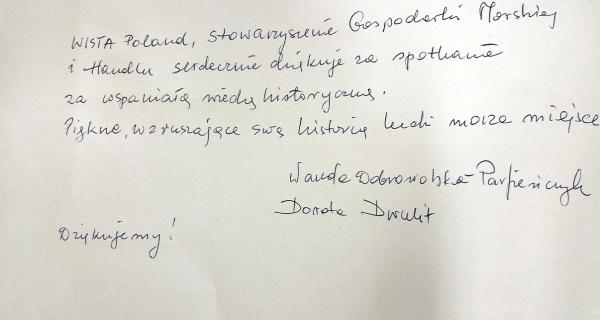 WISTA Poland, Stowarzyszenie Gospodarki Morskiej
i Handlu serdecznie dziękuje za spotkanie
za wspaniałą wiedzę historyczną.
Piękne, wzruszające swą historią ludzi morza miejsce
Wanda Dobrowolska-Parfieńczyk
Dorota Dwulit
Dziękujemy!